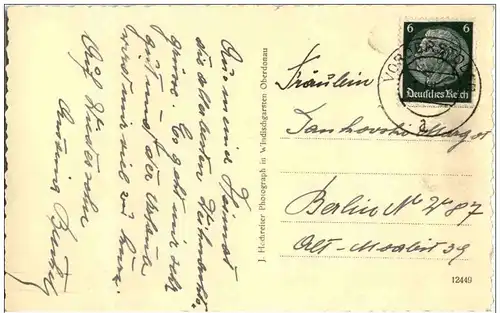 Aus meiner Heimat
die allerbesten
Grüße. Es geht mir sehr
gut und der Urlaub
viel zu kurz.
Auf Wiedersehn
J. Hochreiter Photograph in Windischgarsten Oberdonau
6 6
Deutsches Reich
VORDERSTO
Fräulein
Margot
Berlin NW 87
Alt-Moabit 39
12449